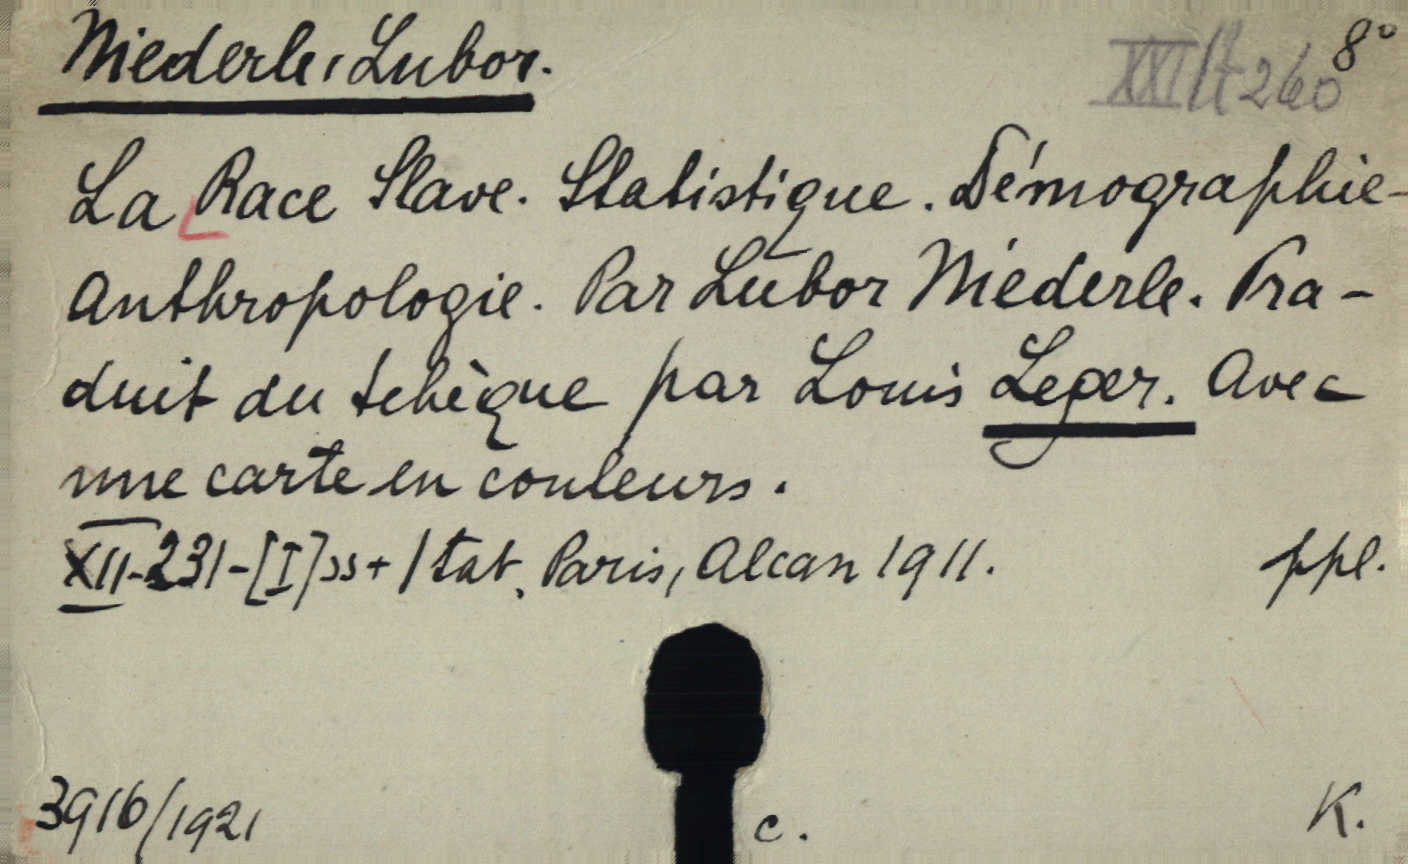 Niederle, Lubor.
8°
XXI/t 260
La Race Slave. Statistique. Démographie-
Anthropologie. Par Lubor Niederle. Tra-
duit du tchèque par Louis Leger. Avec
une carte en couleurs.
XII-231-[I] ss + 1 tab. Paris, Alcan 1911.
ppl.
3916/1921
c.
K.